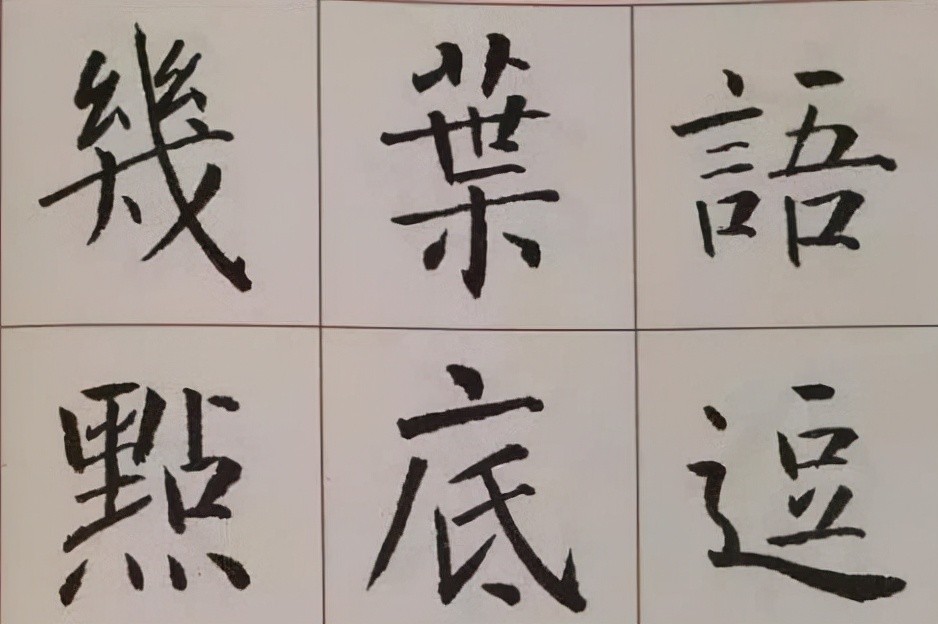 語逗
葉底
幾點